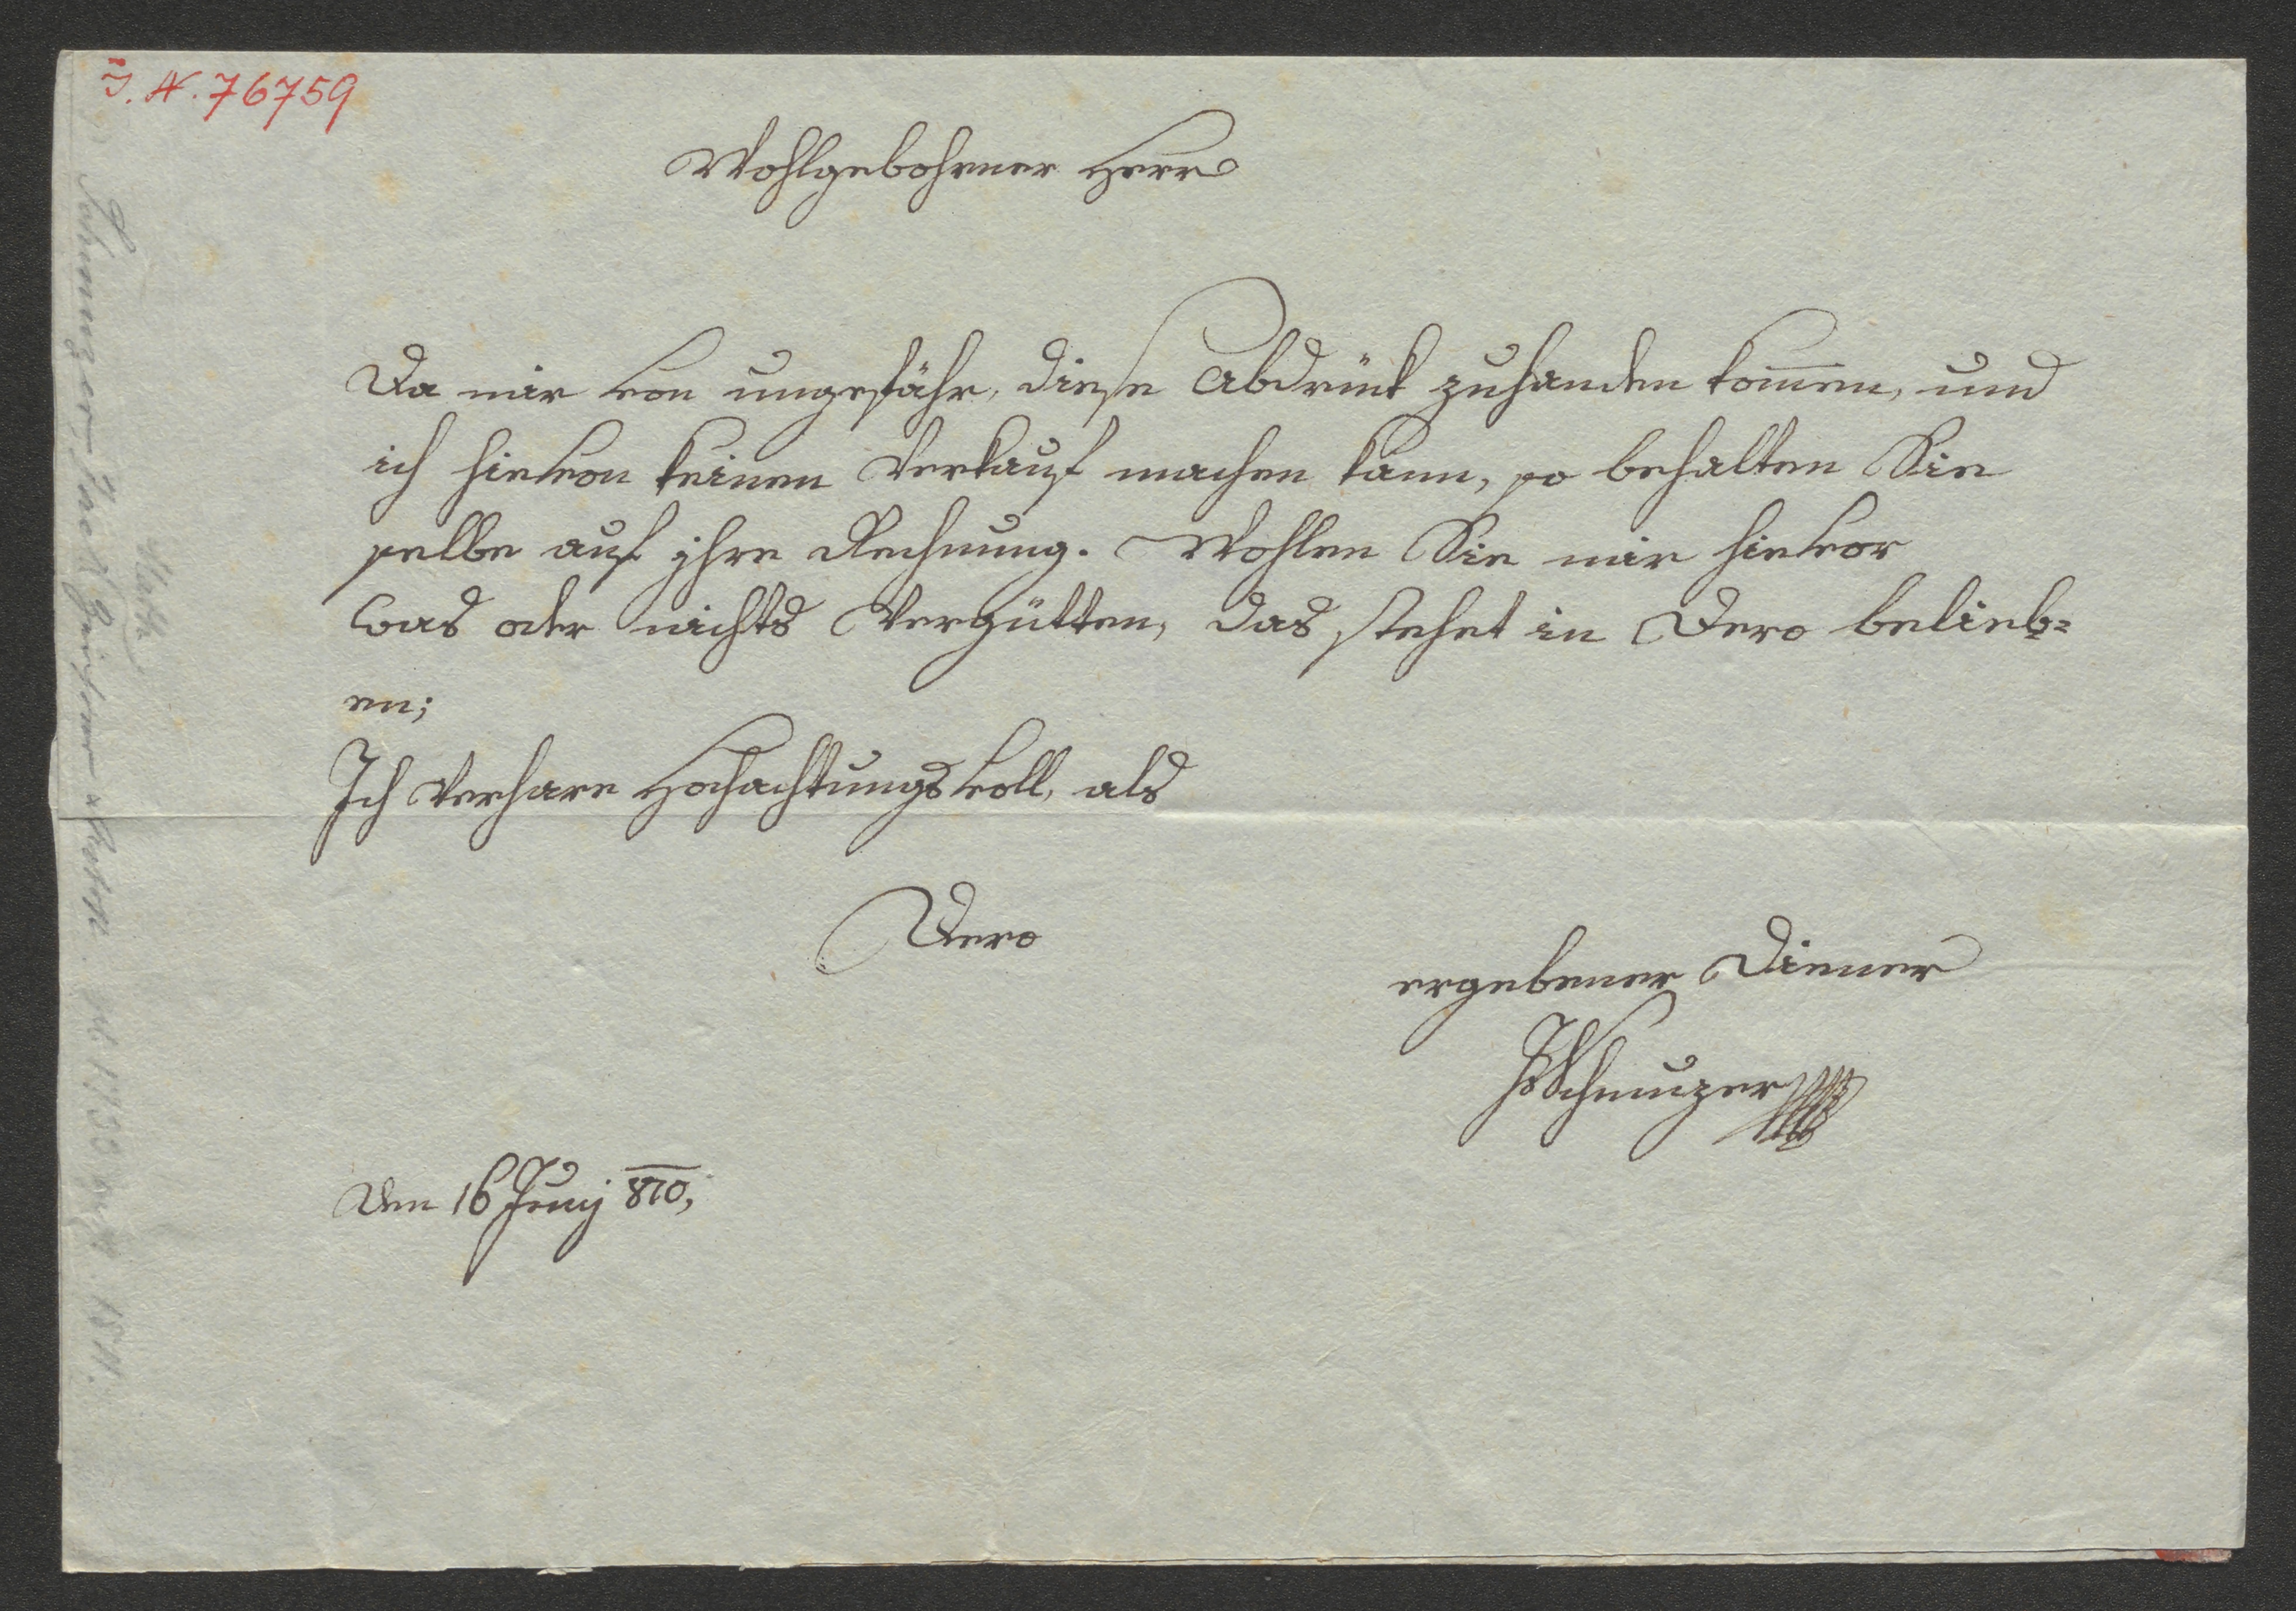 I. N. 76759
Wohlgebohrner Herr
Da mir von ungefähr, diese Abdrük zuhanden kom̄en, und
ich hievon keinen Verkauf machen kann, so behalten Sie
selbe auf ihre Rechnung. Wohlen Sie mir hievor
was oder nichts Vergütten, das stehet in Dero belieb=
en;
Ich Verhare Hochachtungsvoll, als
Dero
ergebener Diener
JSchmuzer
Den 16 Junij 810,
Schmuzer Jac